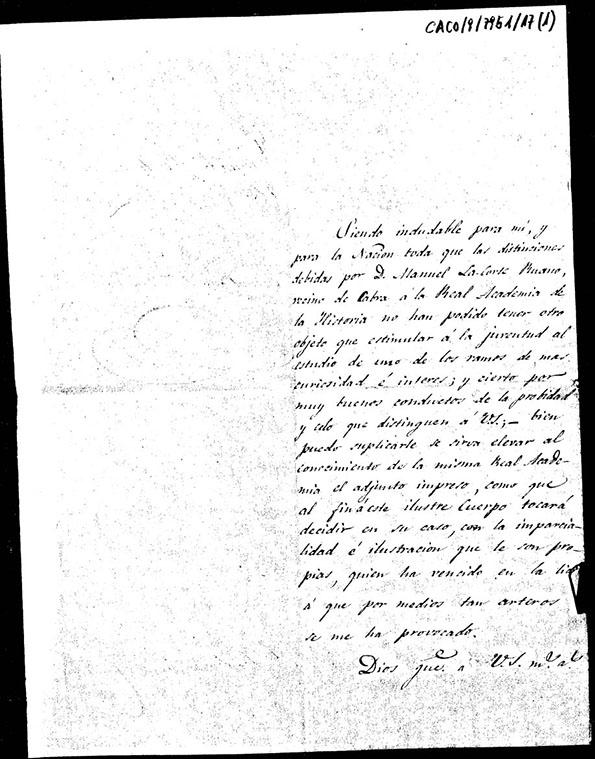 CACO/9/7951/17(1)
Siendo indudable para mí, y
para la Nación toda que las distinciones
debidas por D. Manuel La-Corte Ruano,
vecino de Cabra á la Real Academia de
la Historia no han podido tener otro
objeto que estimular á la juventud al
estudio de uno de los ramos de mas
curiosidad é interes; y cierto por
muy buenos conductos de la probidad
y celo que distinguen á V.S.;– bien
puedo suplicarle se sirva elevar al
conocimiento de la misma Real Acade-
mia el adjunto impreso, como que
al fin á este ilustre Cuerpo tocará
decidir en su caso, con la imparcia-
lidad é ilustración que le son pro-
pias, quien ha vencido en la lid
á que por medios tan arteros
se me ha provocado.
Dios gue. á V.S. ms. as